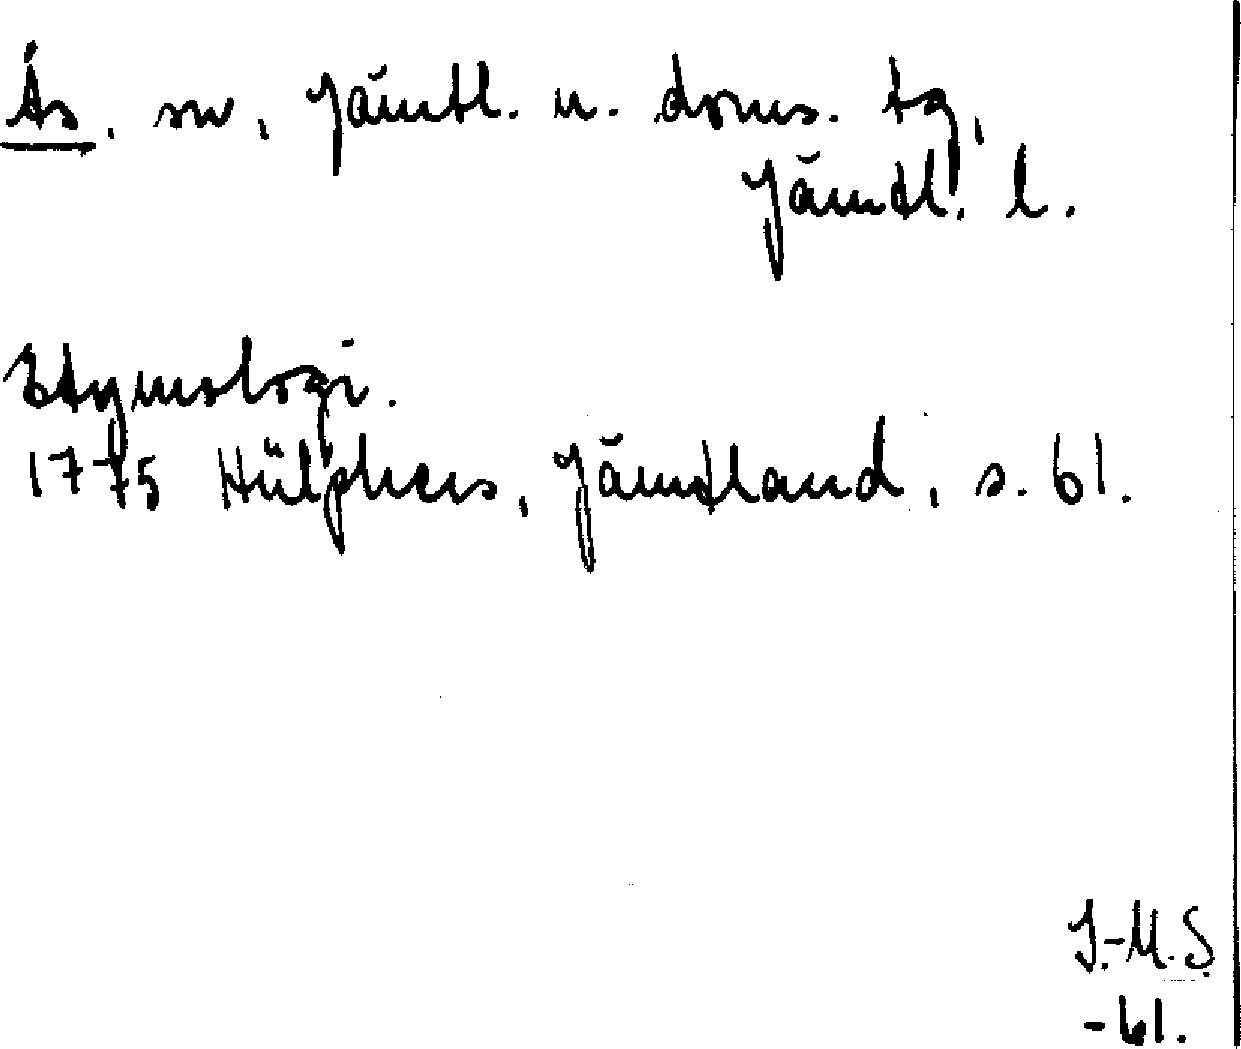 Ås, sn, Jämtl. n. doms. tg,
Jämtl. l.
Etymologi.
1775 Hülphers, Jämtland, s. 61.
I.-M.S.
-61.